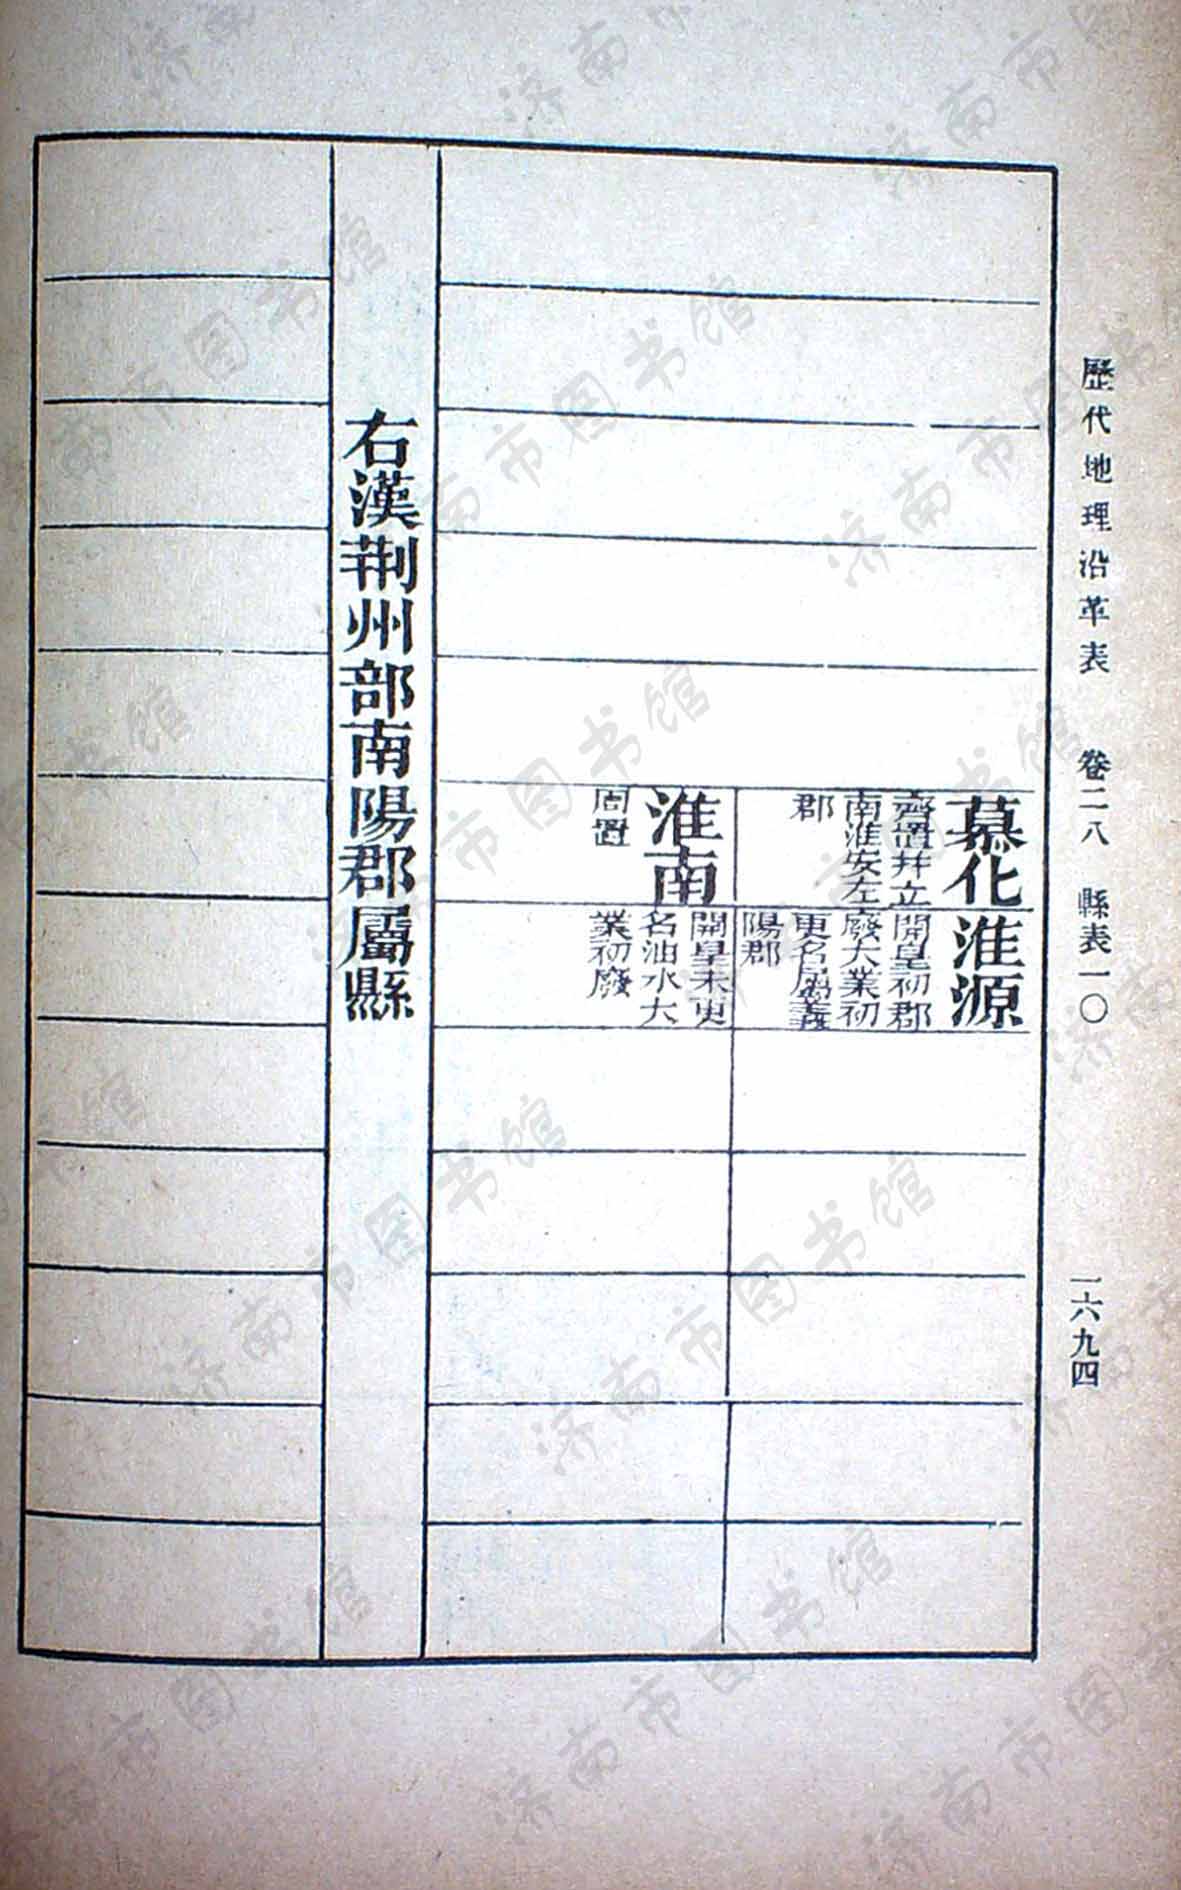 歷代地理沿革表 卷二八 縣表一〇 一六九四
慕化
齊置幷立
南淮安左
郡
淮源
開皇初郡
廢大業初
更名屬義
陽郡
淮南
周置
開皇末更
名油水大
業初廢
右漢荆州部南陽郡屬縣
济南市图书馆